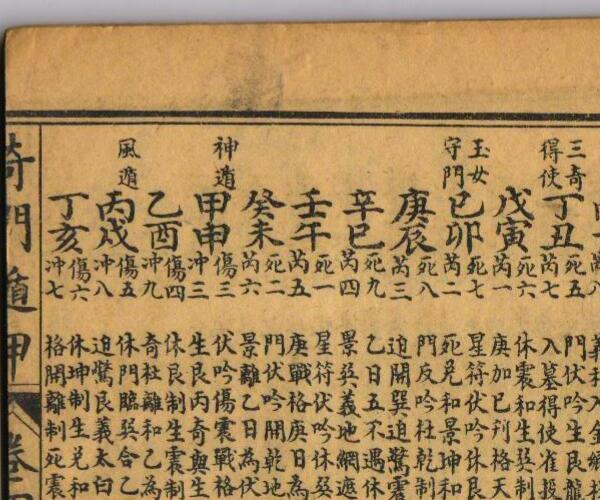 三奇得使
丁丑
死五
芮七
門伏吟生艮龍
入墓得使雀投
戊寅
死六
芮一
休震和生巽制
庚加巳刋格天
玉女守門
己卯
死七
芮二
星符伏吟休艮
死兌和景坤和
庚辰
死八
芮三
門反吟杜乾制
迫開巽迫驚震
辛巳
死九
芮四
乙日五不遇休
景巽義地網遮
壬午
死一
芮五
星符伏吟休巽
庚戰格庚日為
癸未
死二
芮六
門伏吟開乾地
景離乙日為伏
神遁
甲申
傷三
冲三
伏吟傷震戰格
生艮丙奇與生
乙酉
傷四
冲九
休艮制生震制
奇杜離和乙為
丙戌
傷五
冲八
休門臨巽合乙
迫驚艮義太白
風遁
丁亥
傷六
冲七
休坤制生兌和
格開離制死震
奇門遁甲
卷